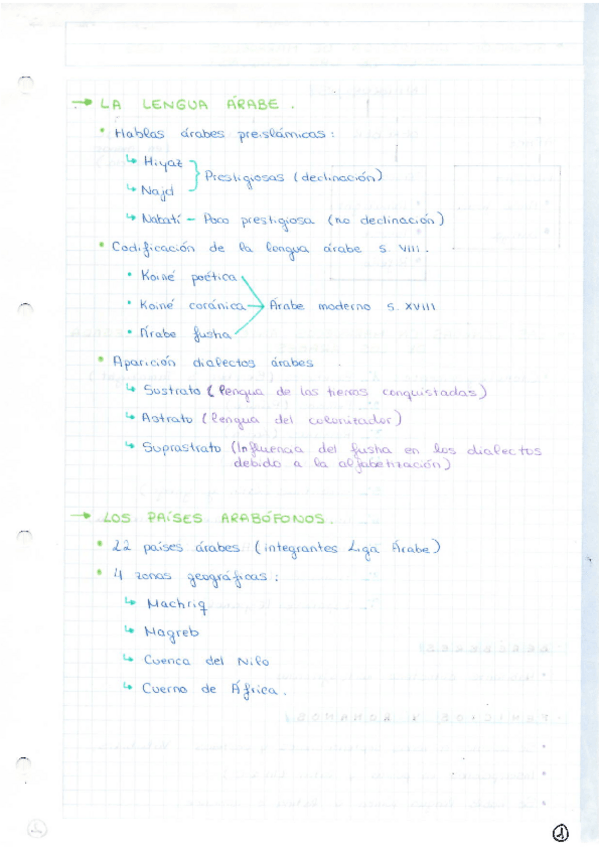 → LA LENGUA ÁRABE.
• Hablas árabes preislámicas:
↳ Hiyaz
} Prestigiosas (declinación)
↳ Najd
↳ Nabatí – Poco prestigiosa (no declinación)
• Codificación de la lengua árabe s. VIII.
• Koiné poética
• Koiné coránica → Árabe moderno s. XVIII
• Árabe fusha
• Aparición dialectos árabes
↳ Sustrato (lengua de las tierras conquistadas)
↳ Astrato (lengua del colonizador)
↳ Suprastrato (Influencia del fusha en los dialectos
debido a la alfabetización)
→ LOS PAÍSES ARABÓFONOS.
• 22 países árabes (integrantes Liga Árabe)
• 4 zonas geográficas:
↳ Machriq
↳ Magreb
↳ Cuenca del Nilo
↳ Cuerno de África.
1